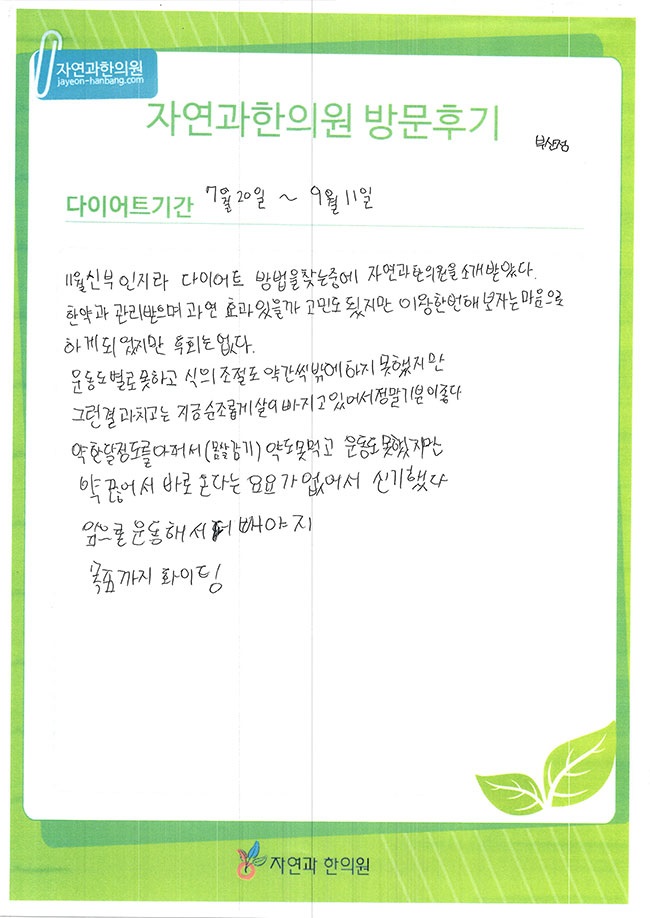 자연과한의원
jayeon-hanbang.com
자연과한의원 방문후기
부산점
다이어트기간 7월 20일 ~ 9월 11일
11월신부인지라 다이어트 방법을찾는중에 자연과한의원을소개받았다.
한약과 관리받으며 과연 효과있을까 고민도 됬지만 이왕한번해보자는마음으로
하게되었지만 후회는없다.
운동도별로못하고 식의조절도 약간씩밖에하지 못했지만
그런결과치고는 지금순조롭게살이빠지고있어서정말기분이좋다
약한달정도를아퍼서(몸살감기) 약도못먹고 운동도못했지만
약끊어서바로온다는요요가없어서 신기했다
앞으로운동해서더빼야지
목표까지 화이팅
자연과 한의원